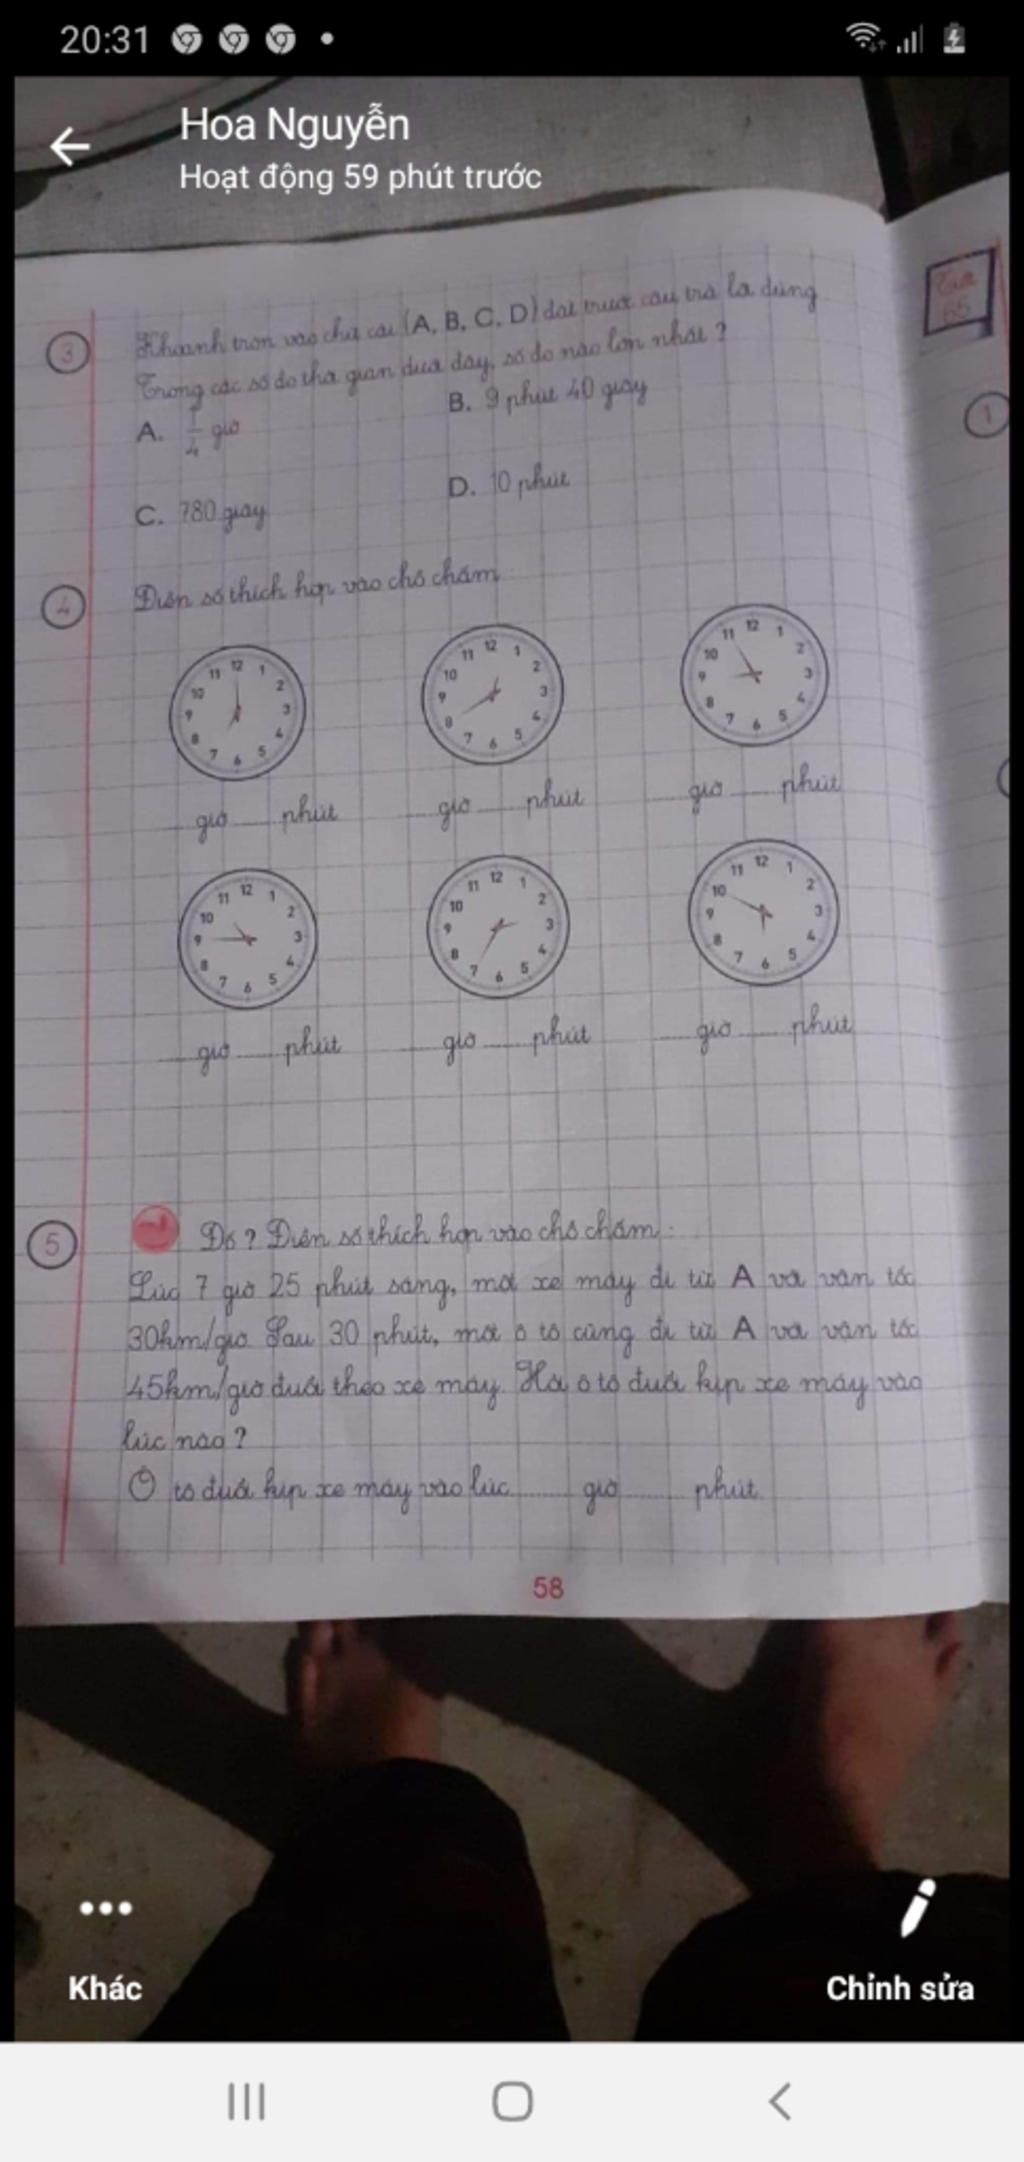 20:31
Hoa Nguyễn
Hoạt động 59 phút trước
3
Khoanh tròn vào chữ cái (A, B, C, D) đặt trước câu trả lời đúng
Trong các số đo thời gian dưới đây, số đo nào lớn nhất?
A. 1/4 giờ
B. 9 phút 40 giây
C. 780 giây
D. 10 phút
4
Điền số thích hợp vào chỗ chấm
12 1 2 3 4 5 6 7 8 9 10 11
12 1 2 3 4 5 6 7 8 9 10 11
12 1 2 3 4 5 6 7 8 9 10 11
...... giờ ...... phút
...... giờ ...... phút
...... giờ ...... phút
12 1 2 3 4 5 6 7 8 9 10 11
12 1 2 3 4 5 6 7 8 9 10 11
12 1 2 3 4 5 6 7 8 9 10 11
...... giờ ...... phút
...... giờ ...... phút
...... giờ ...... phút
5
Đố? Điền số thích hợp vào chỗ chấm:
Lúc 7 giờ 25 phút sáng, một xe máy đi từ A với vận tốc
30km/giờ. Sau 30 phút, một ô tô cũng đi từ A với vận tốc
45km/giờ đuổi theo xe máy. Hỏi ô tô đuổi kịp xe máy vào
lúc nào?
Ô tô đuổi kịp xe máy vào lúc ...... giờ ...... phút.
58
65
1
Khác
Chỉnh sửa